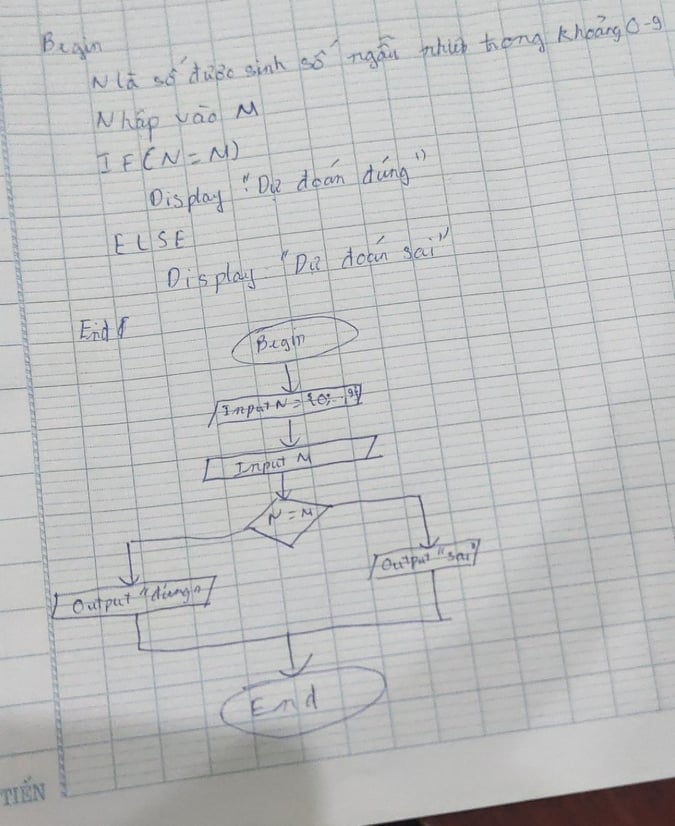 Begin
N là số được sinh số ngẫu nhiên trong khoảng 0-9
Nhập vào M
IF(N=M)
Display "Dự đoán đúng"
ELSE
Display "Dự đoán sai"
End
Begin
Input N = {0;...;9}
Input M
N = M
Output "sai"
Output "đúng"
End
TIẾN